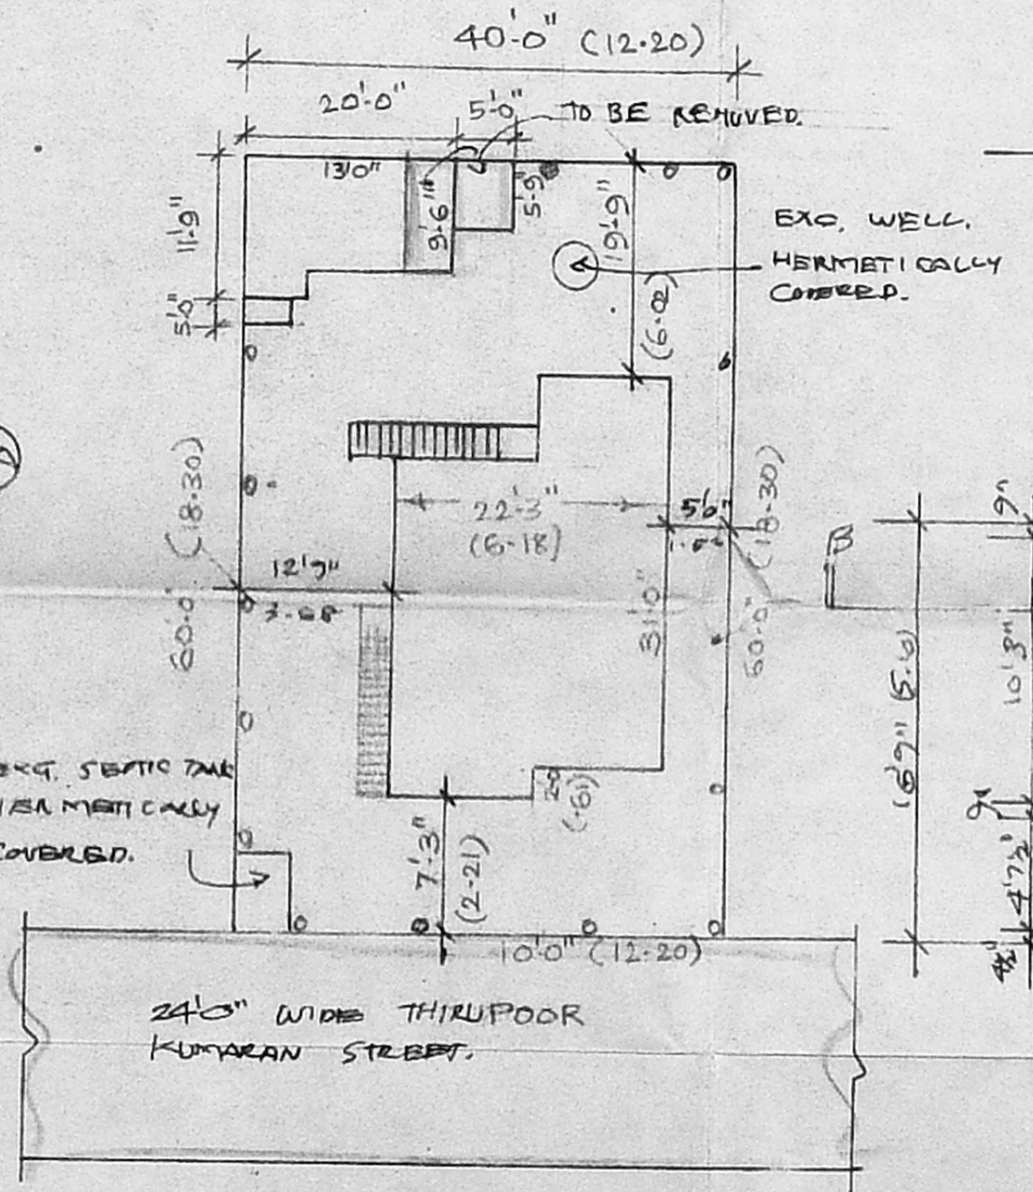 40'-0" (12.20)
20'-0" 5'-0" TO BE REMOVED.
13'0"
9'-6"
5'-9"
19'-9"
(6.02)
11'-9"
5'-0"
EXG. WELL.
HERMETICALLY
COVERED.
22'-3"
(6.18)
5'6"
60'-0" (18.30)
60'-0" (18.30)
12'9"
3.88
31'-0"
B
9"
10'3"
16'9" (5.6)
9"
4'7½"
4½"
EXG. SEPTIC TANK
HERMETICALLY
COVERED.
2'-0
(.61)
7'-3"
(2.21)
10'-0" (12.20)
24'-0" WIDE THIRUPOOR
KUMARAN STREET.